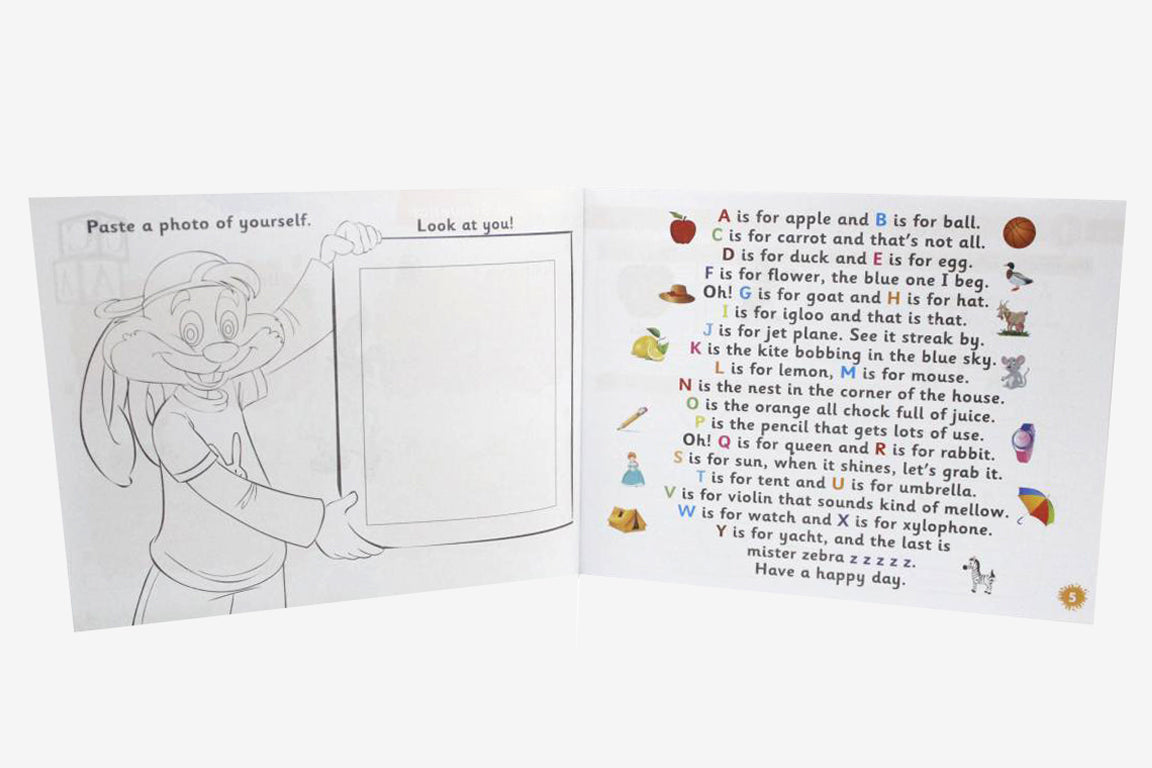 Paste a photo of yourself.
Look at you!
A is for apple and B is for ball.
C is for carrot and that's not all.
D is for duck and E is for egg.
F is for flower, the blue one I beg.
Oh! G is for goat and H is for hat.
I is for igloo and that is that.
J is for jet plane. See it streak by.
K is the kite bobbing in the blue sky.
L is for lemon, M is for mouse.
N is the nest in the corner of the house.
O is the orange all chock full of juice.
P is the pencil that gets lots of use.
Oh! Q is for queen and R is for rabbit.
S is for sun, when it shines, let's grab it.
T is for tent and U is for umbrella.
V is for violin that sounds kind of mellow.
W is for watch and X is for xylophone.
Y is for yacht, and the last is
mister zebra z z z z z.
Have a happy day.
5